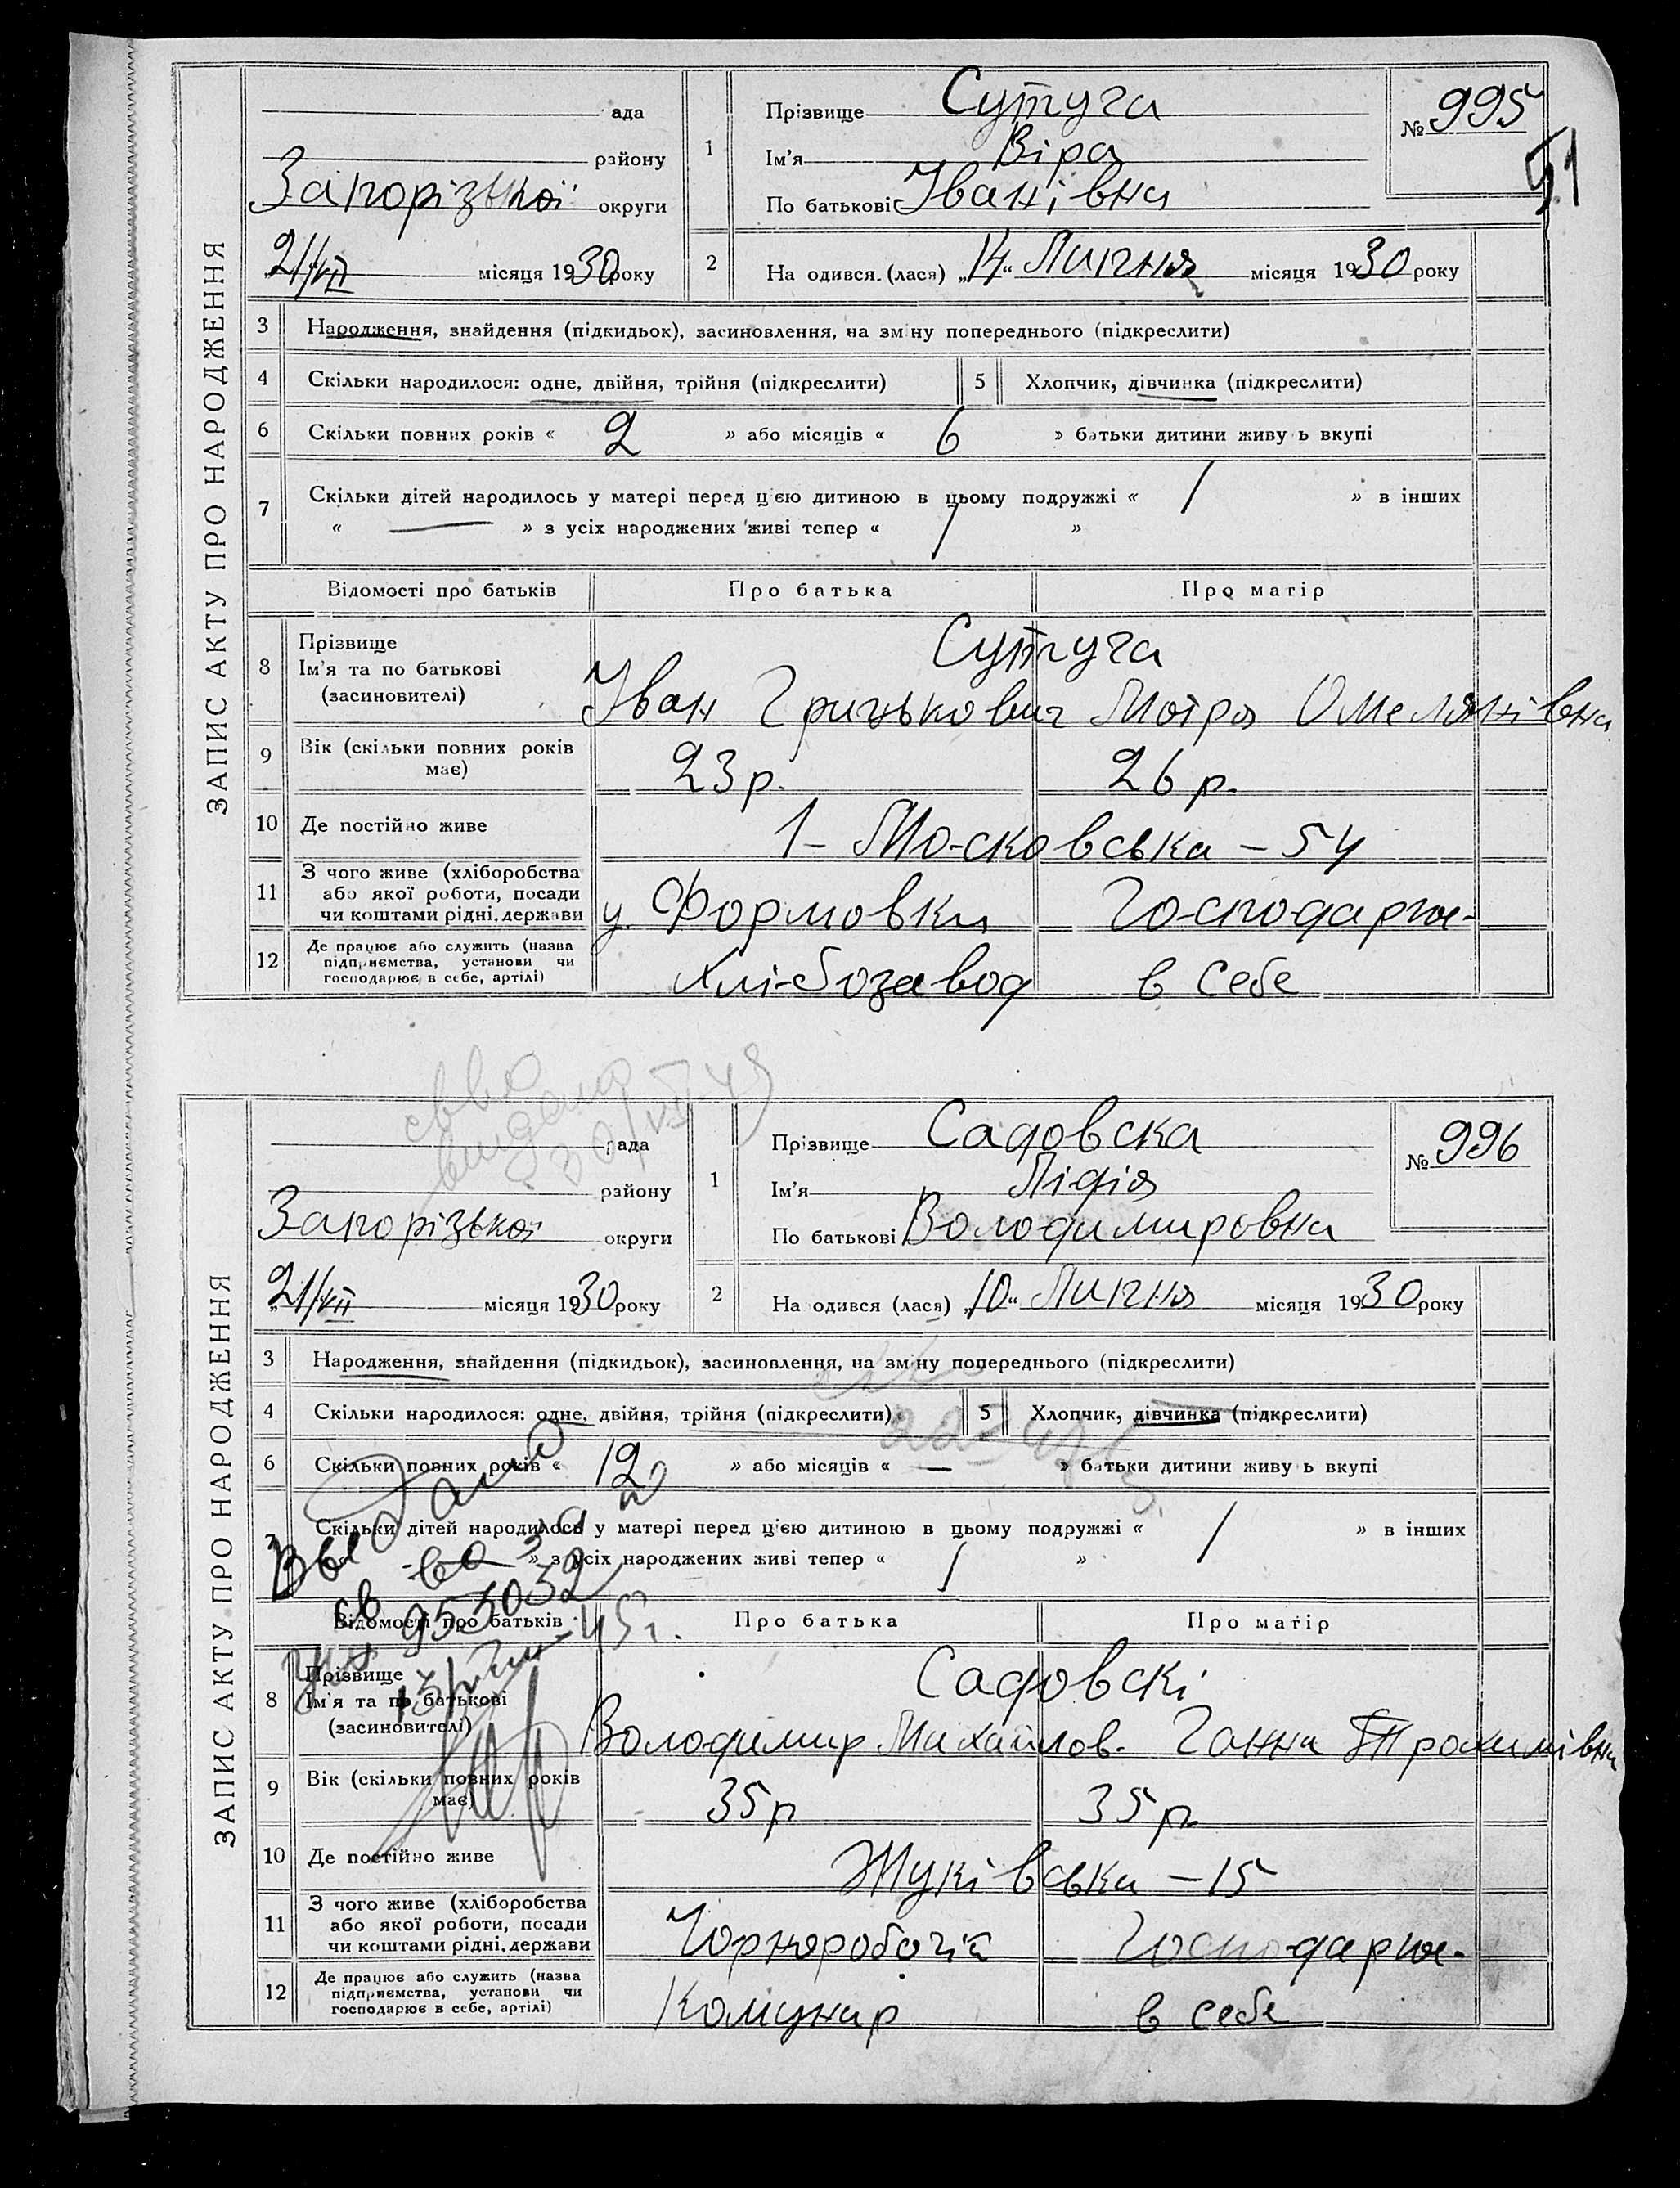 ЗАПИС АКТУ ПРО НАРОДЖЕННЯ
ада
району
Запорізької округи
21/VII місяця 1930 року
1 Прізвище Сутуга
Ім'я Віра
По батькові Іванівна
№ 995
51
2 На одився.(лася) „14“ Липня місяця 1930 року
3 Народження, знайдення (підкидьок), засиновлення, на зміну попереднього (підкреслити)
4 Скільки народилося: одне, двійня, трійня (підкреслити) 5 Хлопчик, дівчинка (підкреслити)
6 Скільки повних років « 2 » або місяців « 6 » батьки дитини живу ь вкупі
7 Скільки дітей народилось у матері перед цією дитиною в цьому подружжі « 1 » в інших
« — » з усіх народжених живі тепер « 1 »
Відомості про батьків Про батька Про матір
8 Прізвище
Ім'я та по батькові
(засиновителі)
Сутуга
Іван Грицькович Мотря Омелянівна
9 Вік (скільки повних років має) 23 р. 26 р.
10 Де постійно живе 1-Московська - 54
11 З чого живе (хліборобства
або якої роботи, посади
чи коштами рідні, держави
у. Формовки Господарює
12 Де працює або служить (назва
підприємства, установи чи
господарює в себе, артілі)
Хлібозавод в себе
св во
видано
30/VII-49
ЗАПИС АКТУ ПРО НАРОДЖЕННЯ
рада
району
Запорізької округи
„21/VII місяця 1930 року
1 Прізвище Садовска
Ім'я Лідія
По батькові Володимировна
№ 996
2 На одився (лася) „10“ Липня місяця 1930 року
3 Народження, знайдення (підкидьок), засиновлення, на зміну попереднього (підкреслити)
4 Скільки народилося: одне, двійня, трійня (підкреслити) 5 Хлопчик, дівчинка (підкреслити)
6 Скільки повних років « 12 » або місяців « — » батьки дитини живу ь вкупі
7 Скільки дітей народилось у матері перед цією дитиною в цьому подружжі « 1 » в інших
» з усіх народжених живі тепер « 1 »
Выдано
св-во за №
953032
45 г.
Відомості про батьків Про батька Про матір
8 Прізвище
Ім'я та по батькові
(засиновителі)
Садовскі
Володимир Михайлов. Ганна Трохимівна
9 Вік (скільки повних років має) 35 р 35 р.
10 Де постійно живе Жуківська - 15
11 З чого живе (хліборобства
або якої роботи, посади
чи коштами рідні, держави
Чорноробочій Господарює
12 Де працює або служить (назва
підприємства, установи чи
господарює в себе, артілі)
Комунар в себе